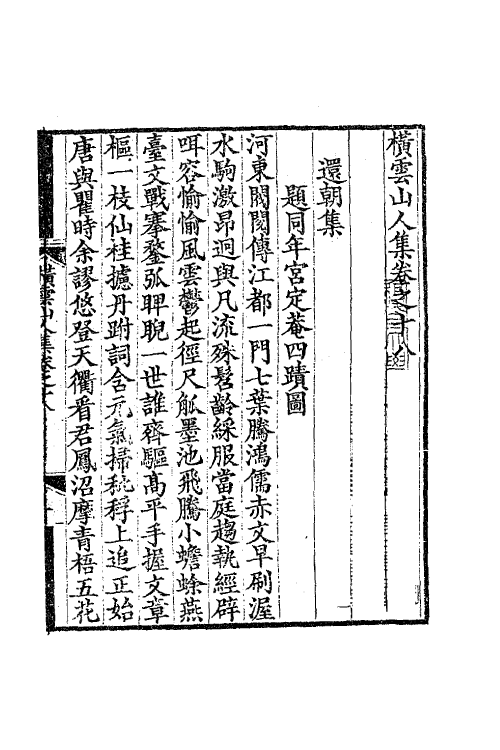 橫雲山人集卷之十八
還朝集
題同年宮定菴四蹟圖
河東閥閱傳江都一門七葉騰鴻儒赤文早刷渥
水駒激昂迥與凡流殊髫齡綵服當庭趨執經辟
咡容愉愉風雲鬱起徑尺觚墨池飛騰小蟾蜍燕
臺文戰搴蝥弧睥睨一世誰齊驅高平手握文章
樞一枝仙桂攄丹跗詞含元氣掃秕稃上追正始
唐與瞿時余謬悠登天衢看君鳳沼摩青梧五花
橫雲山人集卷之十八